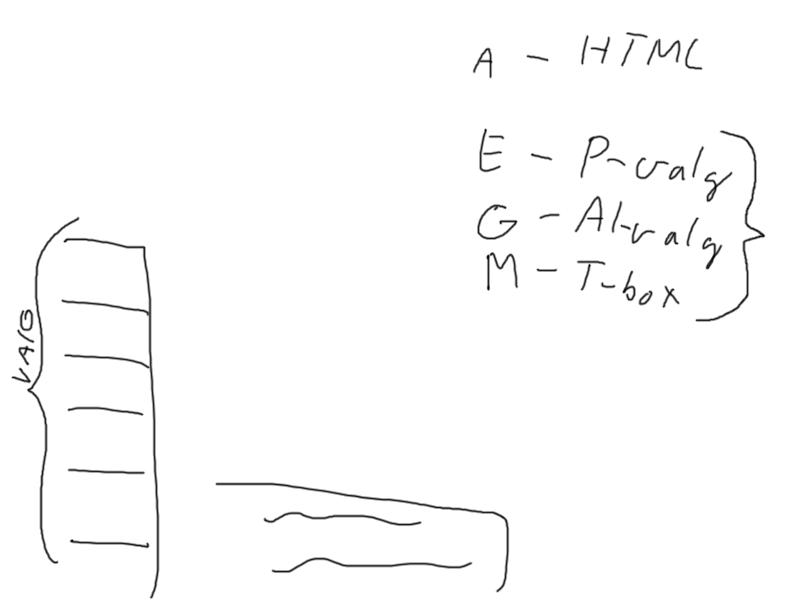 A - HTML
E - P-valg
G - AI-valg
M - T-box
VALG